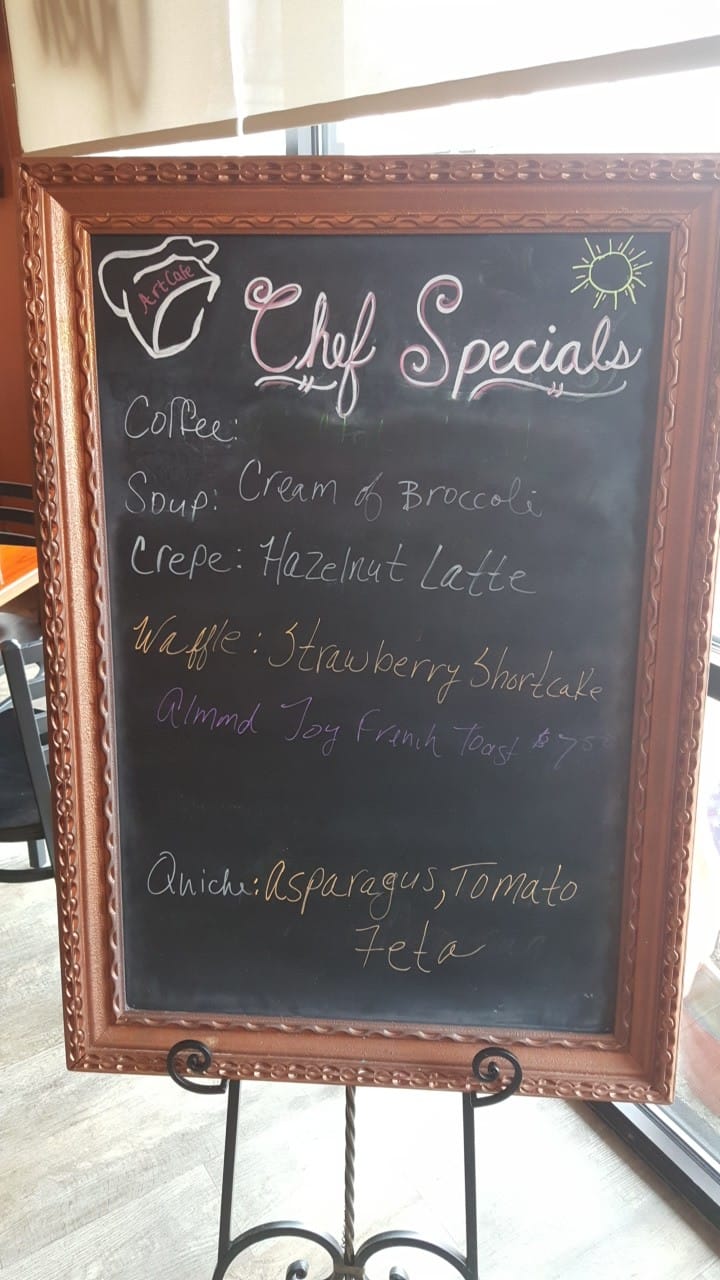 Art Cafe
Chef Specials
Coffee:
Soup: Cream of Broccoli
Crepe: Hazelnut Latte
Waffle: Strawberry Shortcake
Almond Joy French Toast $7.50
Quiche: Asparagus, Tomato
Feta